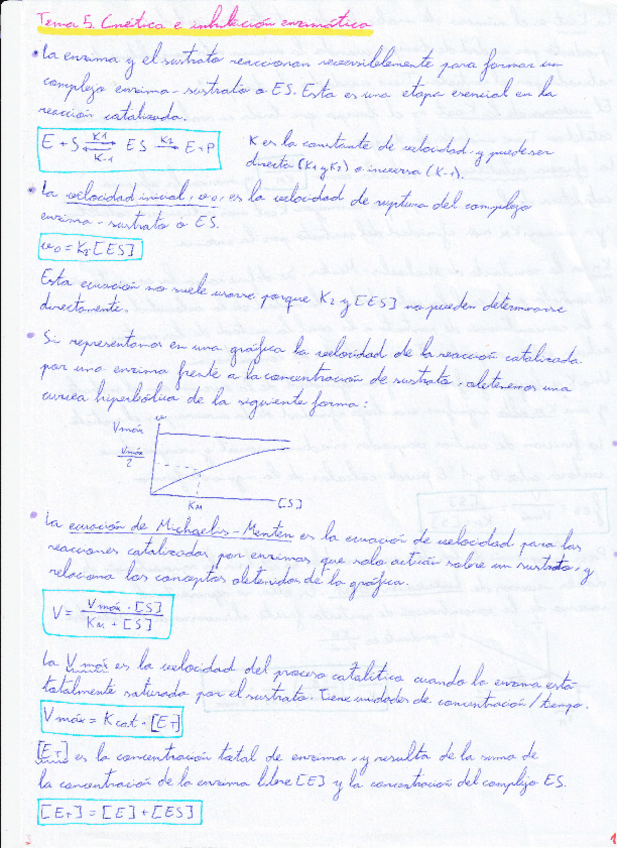 Tema 5. Cinética e inhibición enzimática
• La enzima y el sustrato reaccionan reversiblemente para formar un
complejo enzima-sustrato o ES. Esta es una etapa esencial en la
reacción catalizada.
E + S ⇌ ES → E+P
K1
K-1
K2
K es la constante de velocidad, y puede ser
directa (K1 y K2) o inversa (K-1).
• La velocidad inicial, v0, es la velocidad de ruptura del complejo
enzima-sustrato o ES.
v0 = K2 [ES]
Esta ecuación no suele usarse porque K2 y [ES] no pueden determinarse
directamente.
• Si representamos en una gráfica la velocidad de la reacción catalizada
por una enzima frente a la concentración de sustrato, obtenemos una
curva hiperbólica de la siguiente forma:
v
Vmáx
Vmáx/2
KM
[S]
• La ecuación de Michaelis-Menten es la ecuación de velocidad para las
reacciones catalizadas por enzimas que solo actúan sobre un sustrato, y
relaciona los conceptos obtenidos de la gráfica.
V = Vmáx · [S] / KM + [S]
La Vmáx es la velocidad del proceso catalítico cuando la enzima está
totalmente saturada por el sustrato. Tiene unidades de concentración/tiempo.
Vmáx = Kcat · [ET]
[ET] es la concentración total de enzima, y resulta de la suma de
la concentración de la enzima libre [E] y la concentración del complejo ES.
[ET] = [E] + [ES]
1